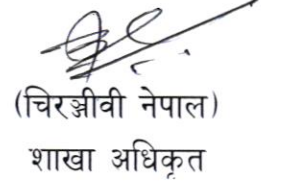 (चिरञ्जीवी नेपाल)
शाखा अधिकृत